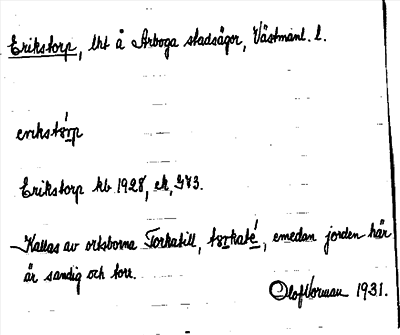 Erikstorp, lht å Arboga stadsägor, Västmanl. l.
erikstórp
Erikstorp kb 1928, ek, 973.
Kallas av ortsborna Torkatill, tørkaté, emedan jorden här
är sandig och torr.
Olof Norman 1931.